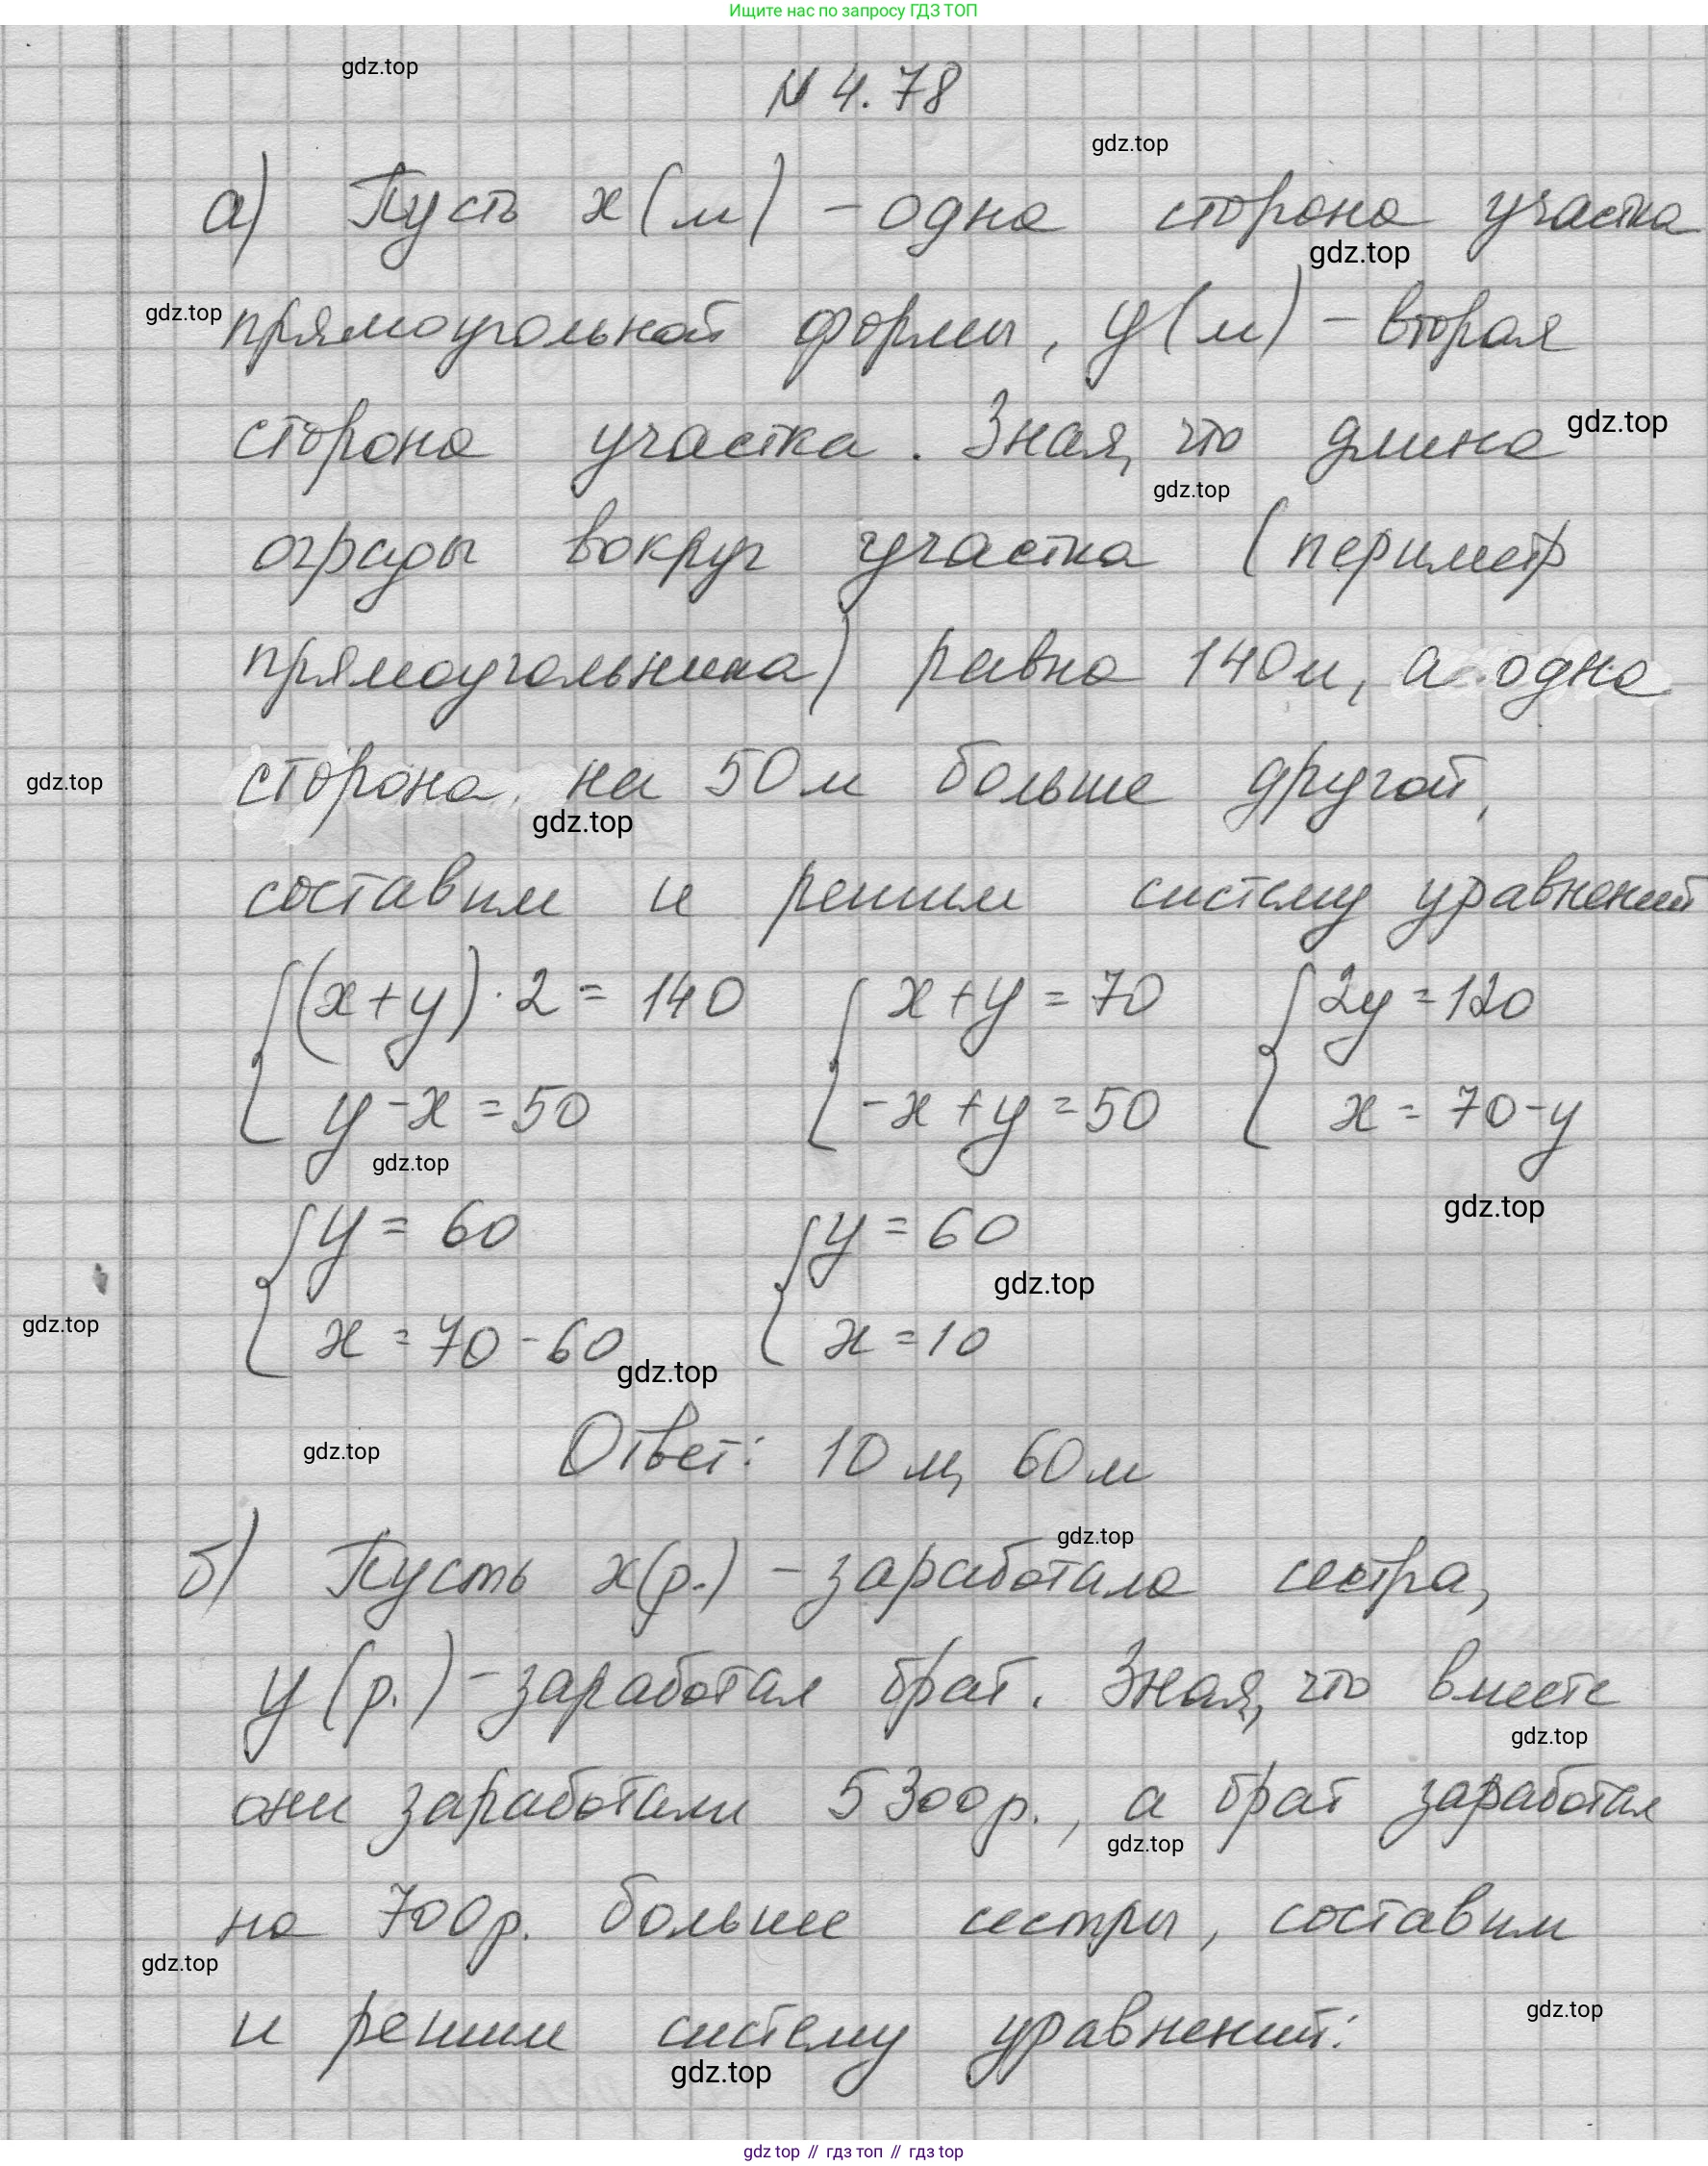 Ищите нас по запросу ГДЗ ТОП
gdz.top
№ 4.78
gdz.top
а) Пусть x(м) – одна сторона участка
gdz.top
gdz.top
прямоугольной формы, y(м) – вторая
сторона участка. Зная, что длина
gdz.top
gdz.top
ограды вокруг участка (периметр
прямоугольника) равна 140м, а одна
сторона на 50м больше другой,
gdz.top
gdz.top
составим и решим систему уравнений
{(x+y)·2 = 140 { x+y = 70 { 2y = 120
y-x = 50 -x+y = 50 x = 70-y
gdz.top
gdz.top
{ y = 60 { y = 60
gdz.top
gdz.top
x = 70-60 x = 10
gdz.top
gdz.top
Ответ: 10 м, 60м
gdz.top
б) Пусть x(р.) – заработала сестра,
y (р.) – заработал брат. Зная, что вместе
gdz.top
они заработали 5300р., а брат заработал
gdz.top
на 700р. больше сестры, составим
gdz.top
и решим систему уравнений:
gdz.top
gdz.top
gdz top // гдз топ // гдз top